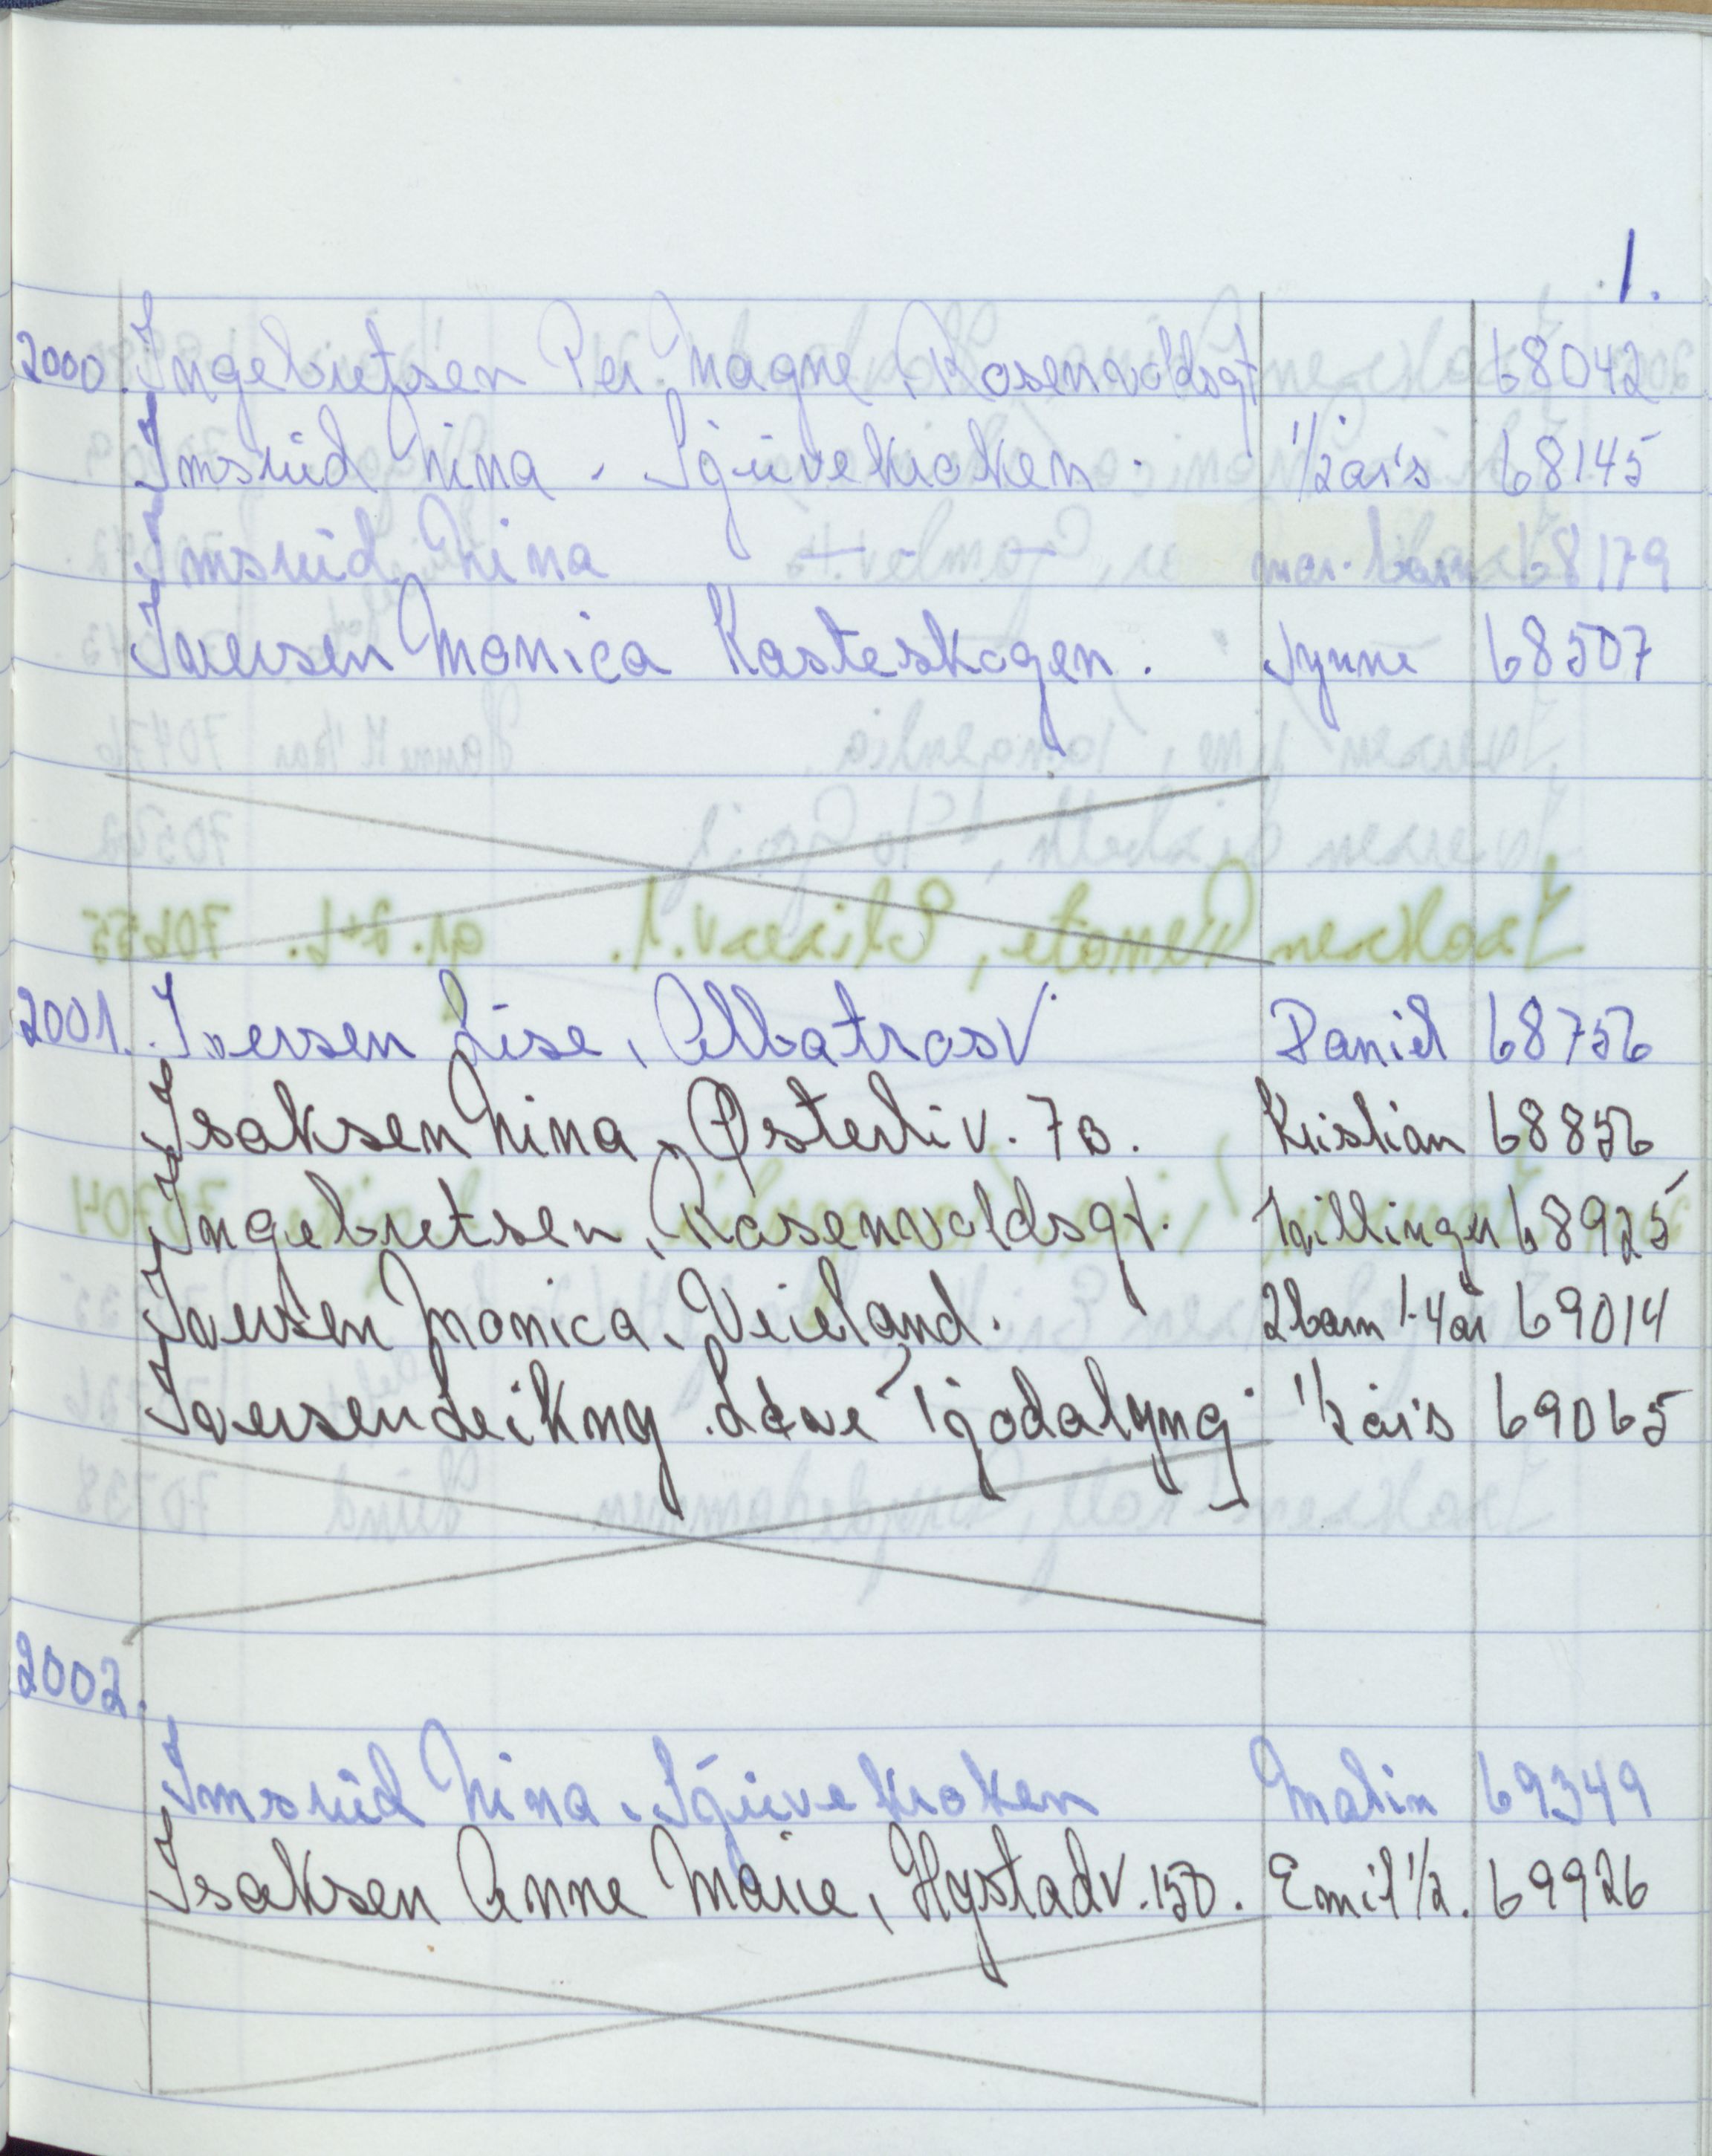 1.
2000. Ingebretsen Per Magne, Rosenvoldsgt 68042
Imsrud Nina - Tjuvekroken. 1/2 års 68145
Imsrud Nina - 68179
Iversen Monica Kasteskogen. Synne 68507
2001. Iversen Lise, Albatrosv. Daniel 68756
Isaksen Nina, Østerliv. 7B. Kristian 68856
Ingebretsen, Rosenvoldsgt. tvillinger 68925
Iversen Monica, Veieland. 2 barn 1-4 år 69014
Iversen 1/2 års 69065
2002.
Imsrud Nina, Tjuvekroken Malin 69349
Isaksen Anne Marie, Hystadv. 150. Emil 1/2. 69926